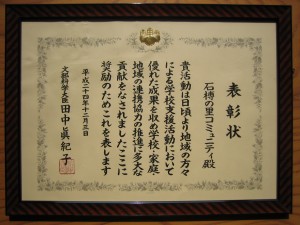 表彰状
石榑の里コミュニティ殿
貴活動は日頃より地域の方々
による学校支援活動において
優れた成果を収め学校・家庭
地域の連携協力の推進に多大な
貢献をなされましたここに
奨励のためこれを表します
平成二十四年十二月三日
文部科学大臣 田中眞紀子